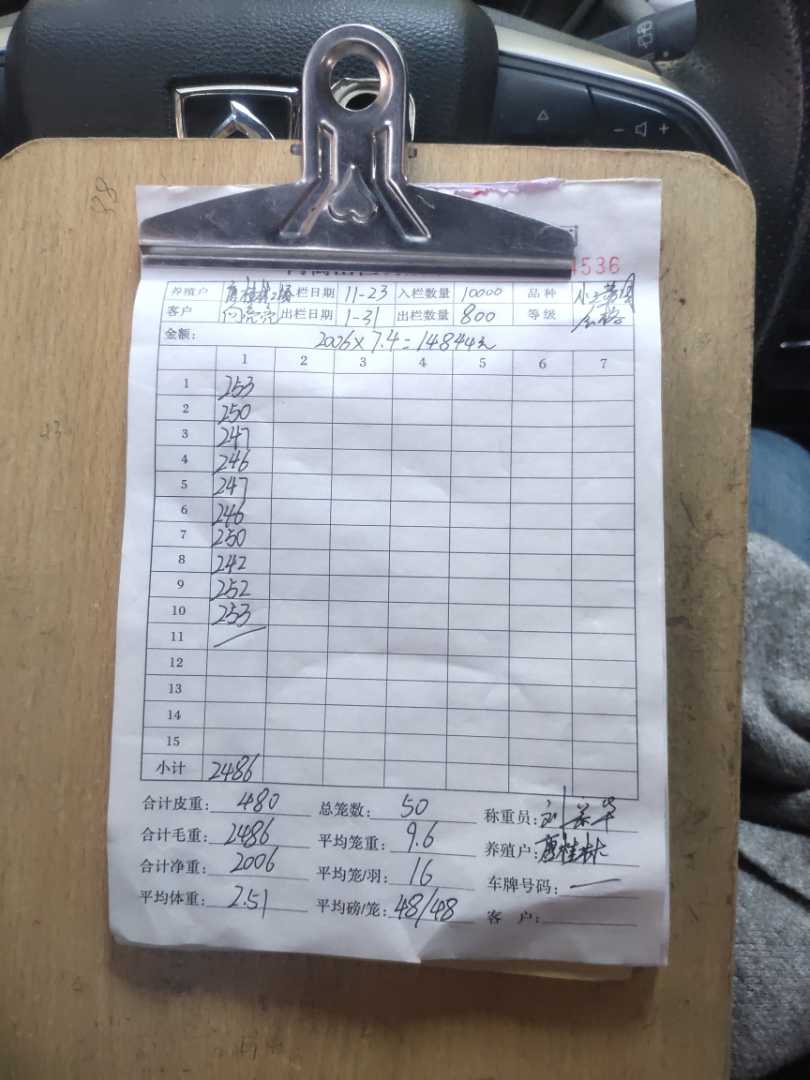 4536
养殖户 入栏日期 11-23 入栏数量 10000 品种
客户 向亮亮 出栏日期 1-31 出栏数量 800 等级 合格
金额: 2006×7.4=14844元
1 2 3 4 5 6 7
1 253
2 250
3 247
4 246
5 247
6 246
7 250
8 242
9 252
10 253
11
12
13
14
15
小计 2486
合计皮重: 480 总笼数: 50 称重员:
合计毛重: 2486 平均笼重: 9.6 养殖户:
合计净重: 2006 平均笼/羽: 16 车牌号码: —
平均体重: 2.51 平均磅/笼: 48/48 客 户: